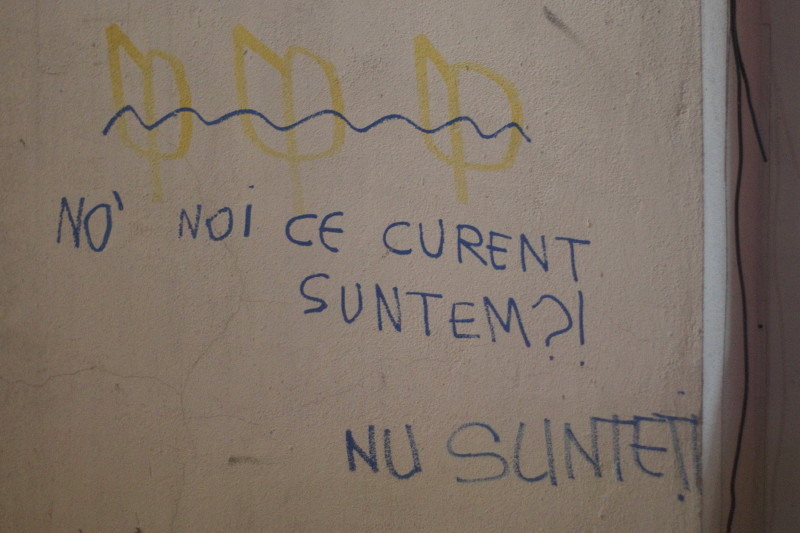 NO' NOI CE CURENT
SUNTEM?!
NU SUNTEȚI